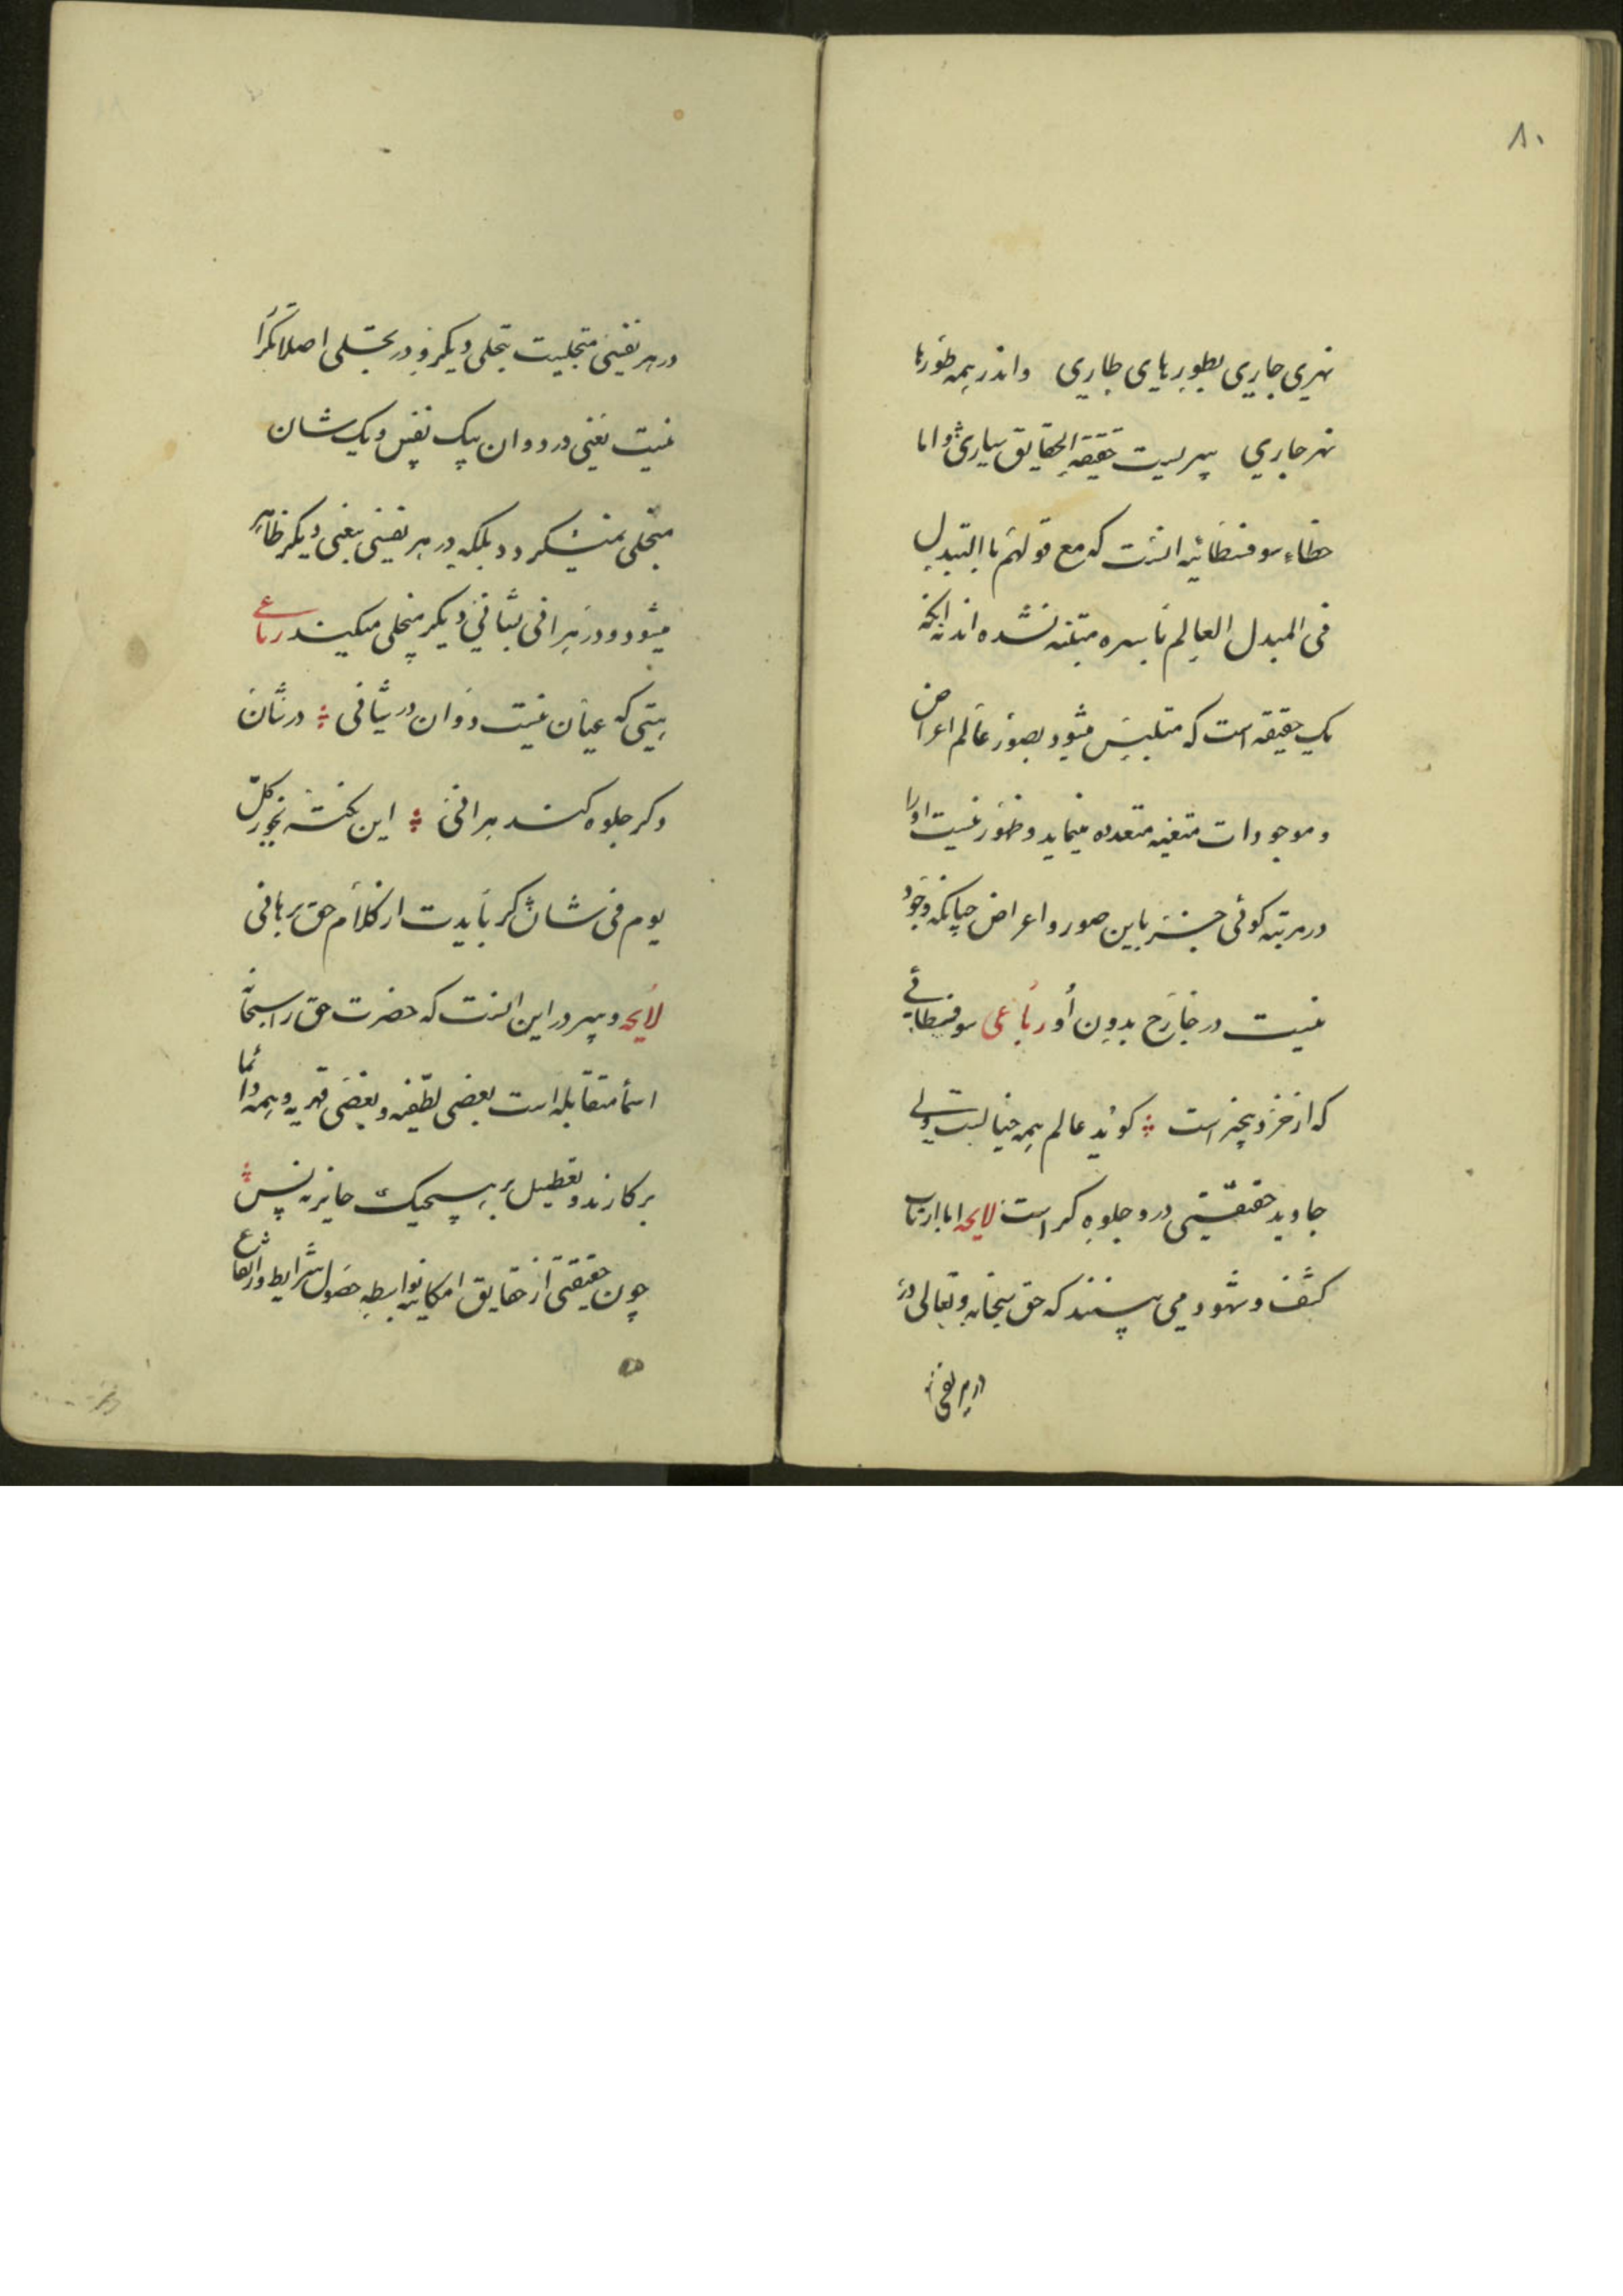 ۸۰
نهری جاری بطورهای طاری واندر همه طورها
نهر جاری سریست حقیقة الحقایق ساری واما
خطاء سوفسطائیه انست که مع قولهم باالتبدل
فی المبدل العالم باسره متنبه نشده اند بانکه
یک حقیقه است که متلبس میشود بصور عالم اعراض
و موجودات متعینه متعدده مینماید و ظهور نیست اورا
در مرتبه کونی جز باین صور و اعراض چنانکه وجود
نیست در خارج بدون او رباعی سوفسطائی
که از خرد بیخبر است کوید عالم همه خیالیست ولی
جاوید حقیقتی درو جلوه کر است لایحه اما ارباب
کشف و شهود می بینند که حق سبحانه وتعالی در
در هر نفسی
در هر نفسی متجلیست بتجلی دیکر و در تجلی اصلا تکرار
نیست یعنی در دوان بیک نفس و یک شان
متجلی نمیشکردد بلکه در هر نفسی بیغنی دیکر ظاهر
میشود و در هر انی بشانی دیکر متجلی میکیند رباعی
هستی که عیان نیست دوان در شانی در شان
دکر جلوه کند هر انی این نکته بجو ز کل
یوم فی شان کر بایدت از کلام حق برهانی
لایحه و سر در این انست که حضرت حق را سبحانه
اسما متقابله است بعضی لطفیه و بعضی قهریه و همه دائما
بر کارند و تعطیل بر هیچیک جایز نه پس
چون حقیقتی از حقایق امکانیه بواسطه حصول شرایط و ارتفاع